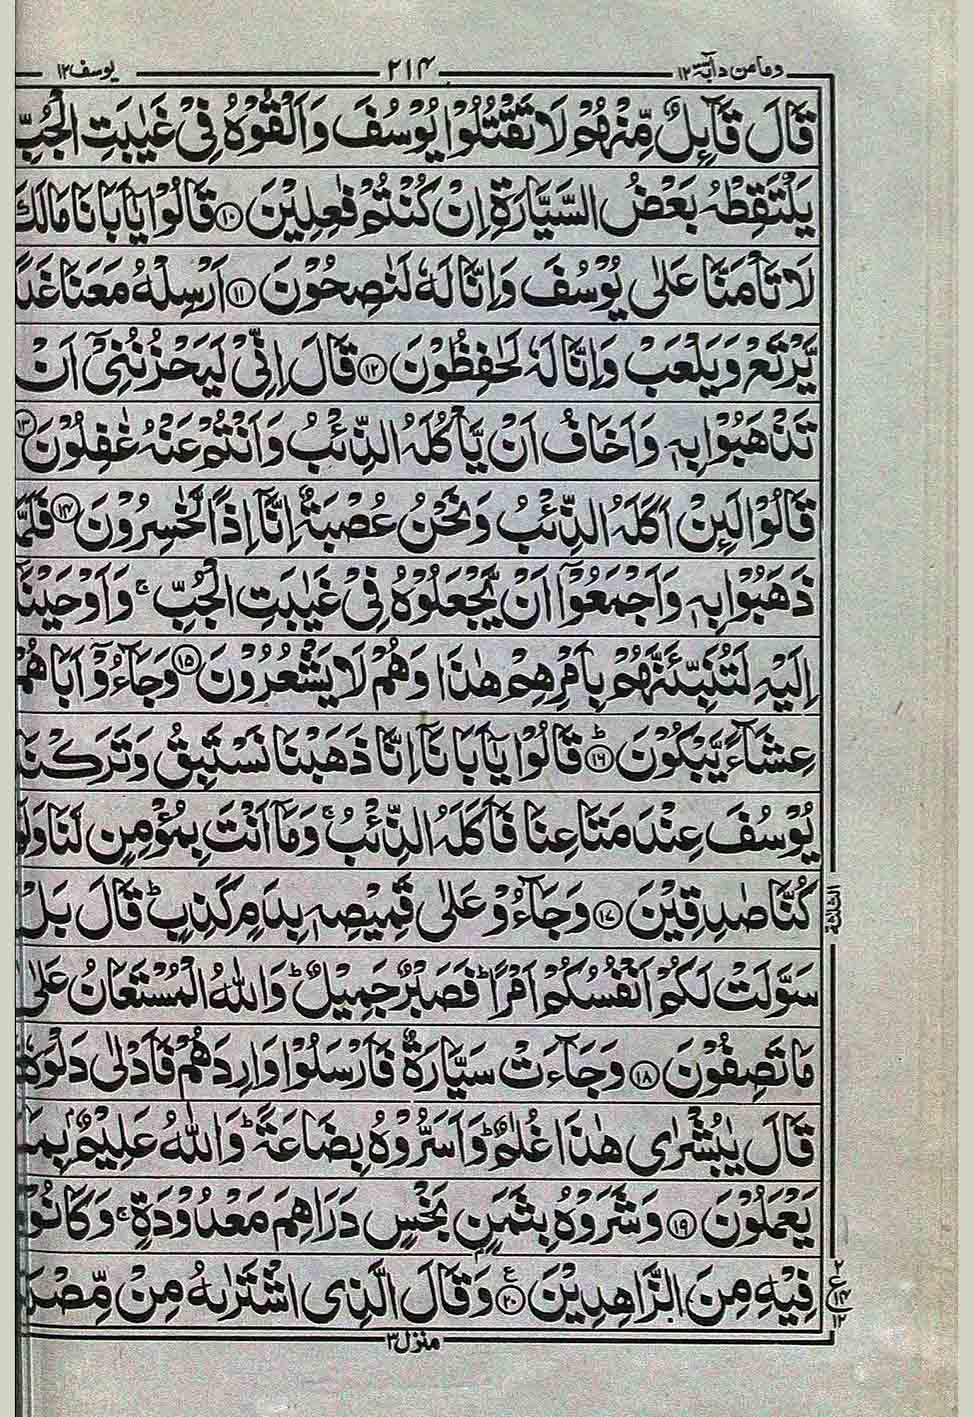 وما من دابة ١٢ ٢١٤ يوسف ١٢
قَالَ قَآئِلٌ مِّنْهُمْ لَا تَقْتُلُوْا يُوْسُفَ وَاَلْقُوْهُ فِيْ غَيٰبَتِ الْجُبِّ
يَلْتَقِطْهُ بَعْضُ السَّيَّارَةِ اِنْ كُنْتُمْ فٰعِلِيْنَ ۝١٠ قَالُوْا يٰٓاَبَانَا مَالَكَ
لَا تَاْمَنَّا عَلٰى يُوْسُفَ وَاِنَّا لَهٗ لَنٰصِحُوْنَ ۝١١ اَرْسِلْهُ مَعَنَا غَدًا
يَّرْتَعْ وَيَلْعَبْ وَاِنَّا لَهٗ لَحٰفِظُوْنَ ۝١٢ قَالَ اِنِّيْ لَيَحْزُنُنِيْٓ اَنْ
تَذْهَبُوْا بِهٖ وَاَخَافُ اَنْ يَّاْكُلَهُ الذِّئْبُ وَاَنْتُمْ عَنْهُ غٰفِلُوْنَ ۝١٣
قَالُوْا لَئِنْ اَكَلَهُ الذِّئْبُ وَنَحْنُ عُصْبَةٌ اِنَّآ اِذًا لَّخٰسِرُوْنَ ۝١٤ فَلَمَّا
ذَهَبُوْا بِهٖ وَاَجْمَعُوْٓا اَنْ يَّجْعَلُوْهُ فِيْ غَيٰبَتِ الْجُبِّ ۚ وَاَوْحَيْنَآ
اِلَيْهِ لَتُنَبِّئَنَّهُمْ بِاَمْرِهِمْ هٰذَا وَهُمْ لَا يَشْعُرُوْنَ ۝١٥ وَجَآءُوْٓ اَبَاهُمْ
عِشَآءً يَّبْكُوْنَ ۝١٦ؕ قَالُوْا يٰٓاَبَانَآ اِنَّا ذَهَبْنَا نَسْتَبِقُ وَتَرَكْنَا
يُوْسُفَ عِنْدَ مَتَاعِنَا فَاَكَلَهُ الذِّئْبُ ۚ وَمَآ اَنْتَ بِمُؤْمِنٍ لَّنَا وَلَوْ
كُنَّا صٰدِقِيْنَ ۝١٧ وَجَآءُوْ عَلٰى قَمِيْصِهٖ بِدَمٍ كَذِبٍ ؕ قَالَ بَلْ
سَوَّلَتْ لَكُمْ اَنْفُسُكُمْ اَمْرًا ؕ فَصَبْرٌ جَمِيْلٌ ؕ وَاللّٰهُ الْمُسْتَعَانُ عَلٰى
مَا تَصِفُوْنَ ۝١٨ وَجَآءَتْ سَيَّارَةٌ فَاَرْسَلُوْا وَارِدَهُمْ فَاَدْلٰى دَلْوَهٗ
قَالَ يٰبُشْرٰى هٰذَا غُلٰمٌ ؕ وَاَسَرُّوْهُ بِضَاعَةً ؕ وَاللّٰهُ عَلِيْمٌۢ بِمَا
يَعْمَلُوْنَ ۝١٩ وَشَرَوْهُ بِثَمَنٍۢ بَخْسٍ دَرَاهِمَ مَعْدُوْدَةٍ ۚ وَكَانُوْا
فِيْهِ مِنَ الزَّاهِدِيْنَ ۝٢٠ وَقَالَ الَّذِي اشْتَرٰىهُ مِنْ مِّصْرَ
الثلثة
٢
ع
١٢
١٢
منزل ٣